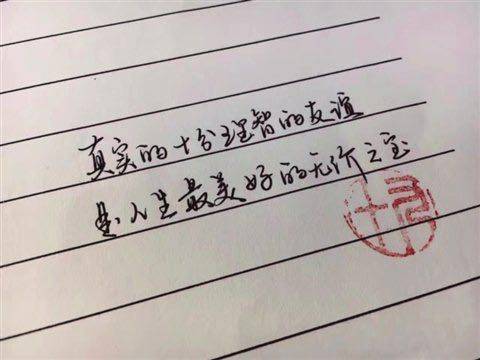 真实的十分理智的友谊
是人生最美好的无价之宝